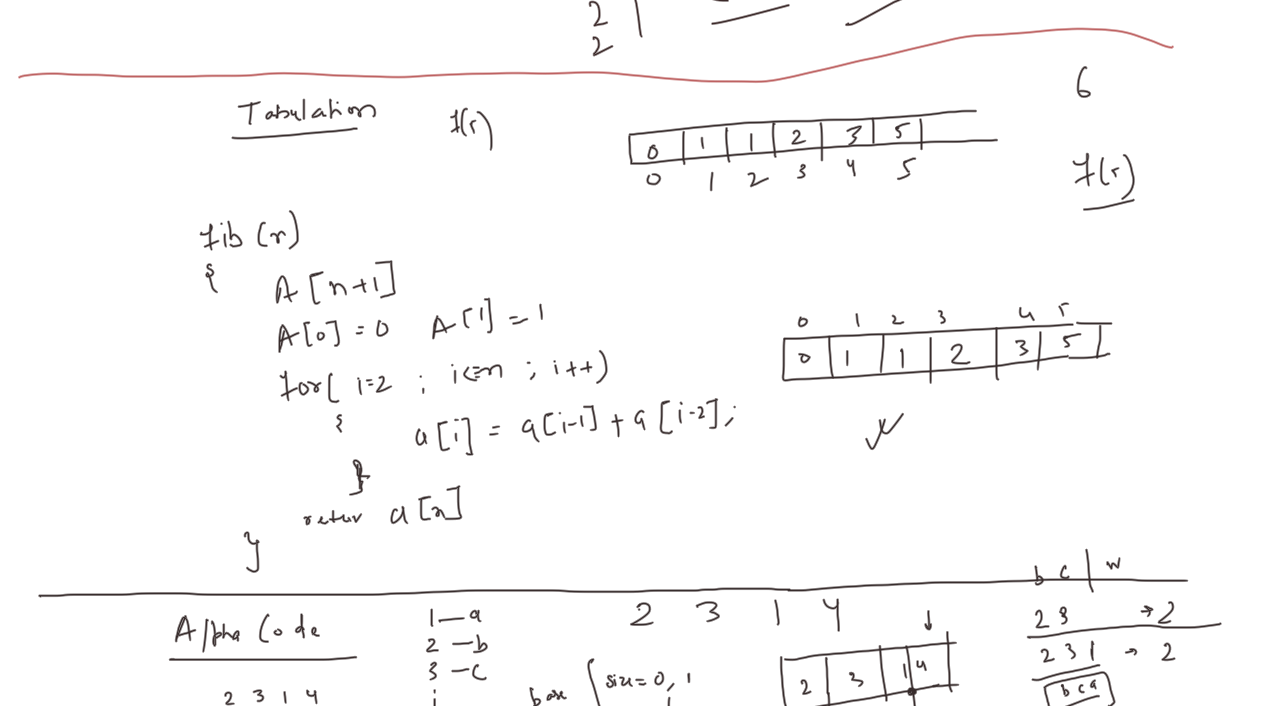 2
2
6
Tabulation f(5)
0 1 1 2 3 5
0 1 2 3 4 5
f(5)
fib (n)
{
A [n+1]
A[0] = 0 A[1] = 1
for( i=2 ; i<=n ; i++)
{
a[i] = a[i-1] + a[i-2];
}
retur a[n]
}
0 1 2 3 4 5
0 1 1 2 3 5
b c | w
Alpha Code
1—a
2 —b
3 —c
2 3 1 4
2 3 1 4
base { size = 0, 1
2 3 1 4
2 3 → 2
2 3 1 → 2
bca